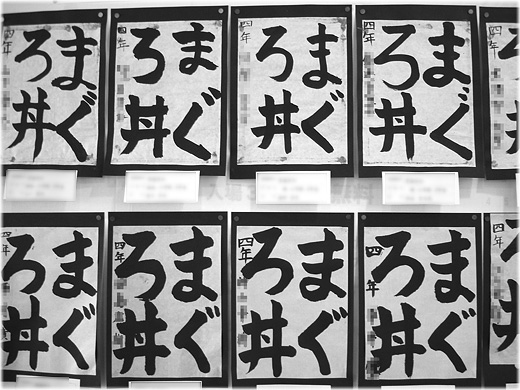 まぐ
ろ丼
四年
まぐ
ろ丼
四年
まぐ
ろ丼
四年
まぐ
ろ丼
四年
四年
まぐ
ろ丼
四年
まぐ
ろ丼
四年
まぐ
ろ丼
四年
まぐ
ろ丼
四年
四年